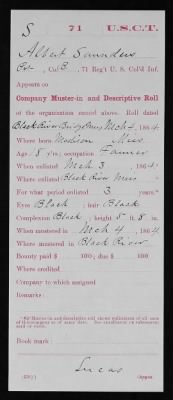 S 71 U.S.C.T.
Albert Saunders
Pvt., Co. B, 71 Reg't U. S. Col'd Inf.
Appears on
Company Muster-in and Descriptive Roll
of the organization named above. Roll dated
Black River Bridge Miss Mch 4, 1864
Where born Madison Miss
Age 18 y'rs; occupation Farmer
When enlisted Mch 3, 1864
Where enlisted Black River Miss
For what period enlisted 3 years.*
Eyes Black; hair Black
Complexion Black; height 5 ft. 8 in.
When mustered in Mch 4, 1864
Where mustered in Black River
Bounty paid $ 100; due $ 100
Where credited
Company to which assigned
Remarks:
Book mark:
Lucas
Copyist.